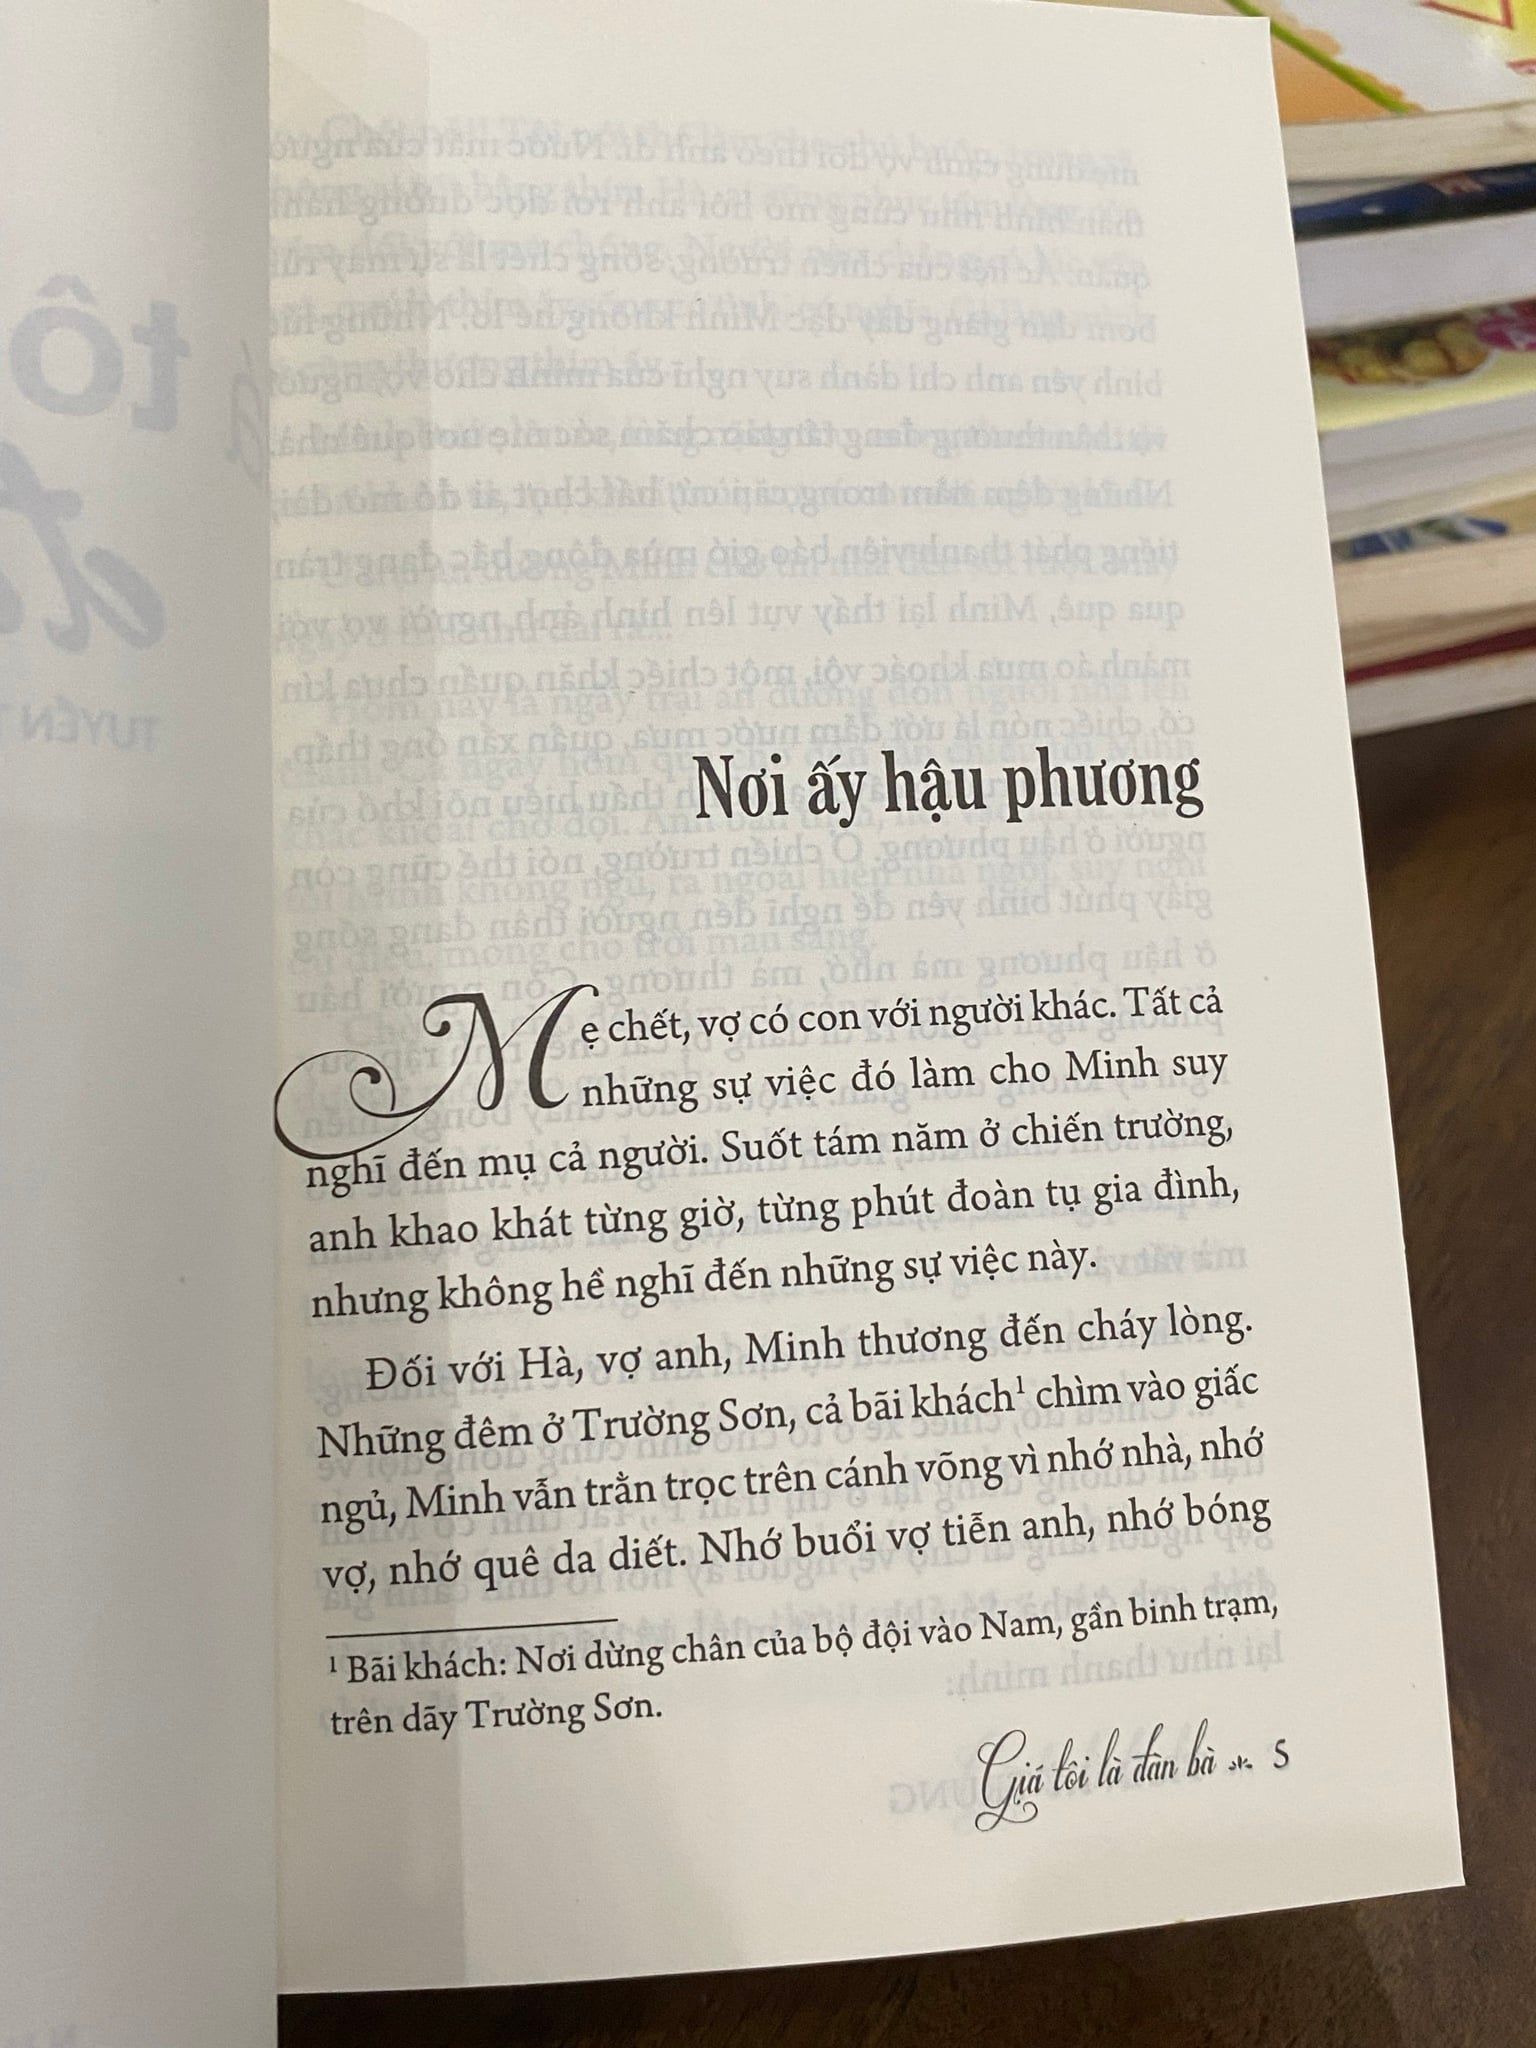 Nơi ấy hậu phương
Mẹ chết, vợ có con với người khác. Tất cả
những sự việc đó làm cho Minh suy
nghĩ đến mụ cả người. Suốt tám năm ở chiến trường,
anh khao khát từng giờ, từng phút đoàn tụ gia đình,
nhưng không hề nghĩ đến những sự việc này.
Đối với Hà, vợ anh, Minh thương đến cháy lòng.
Những đêm ở Trường Sơn, cả bãi khách¹ chìm vào giấc
ngủ, Minh vẫn trằn trọc trên cánh võng vì nhớ nhà, nhớ
vợ, nhớ quê da diết. Nhớ buổi vợ tiễn anh, nhớ bóng
¹ Bãi khách: Nơi dừng chân của bộ đội vào Nam, gần binh trạm,
trên dãy Trường Sơn.
Giá tôi là đàn bà 5